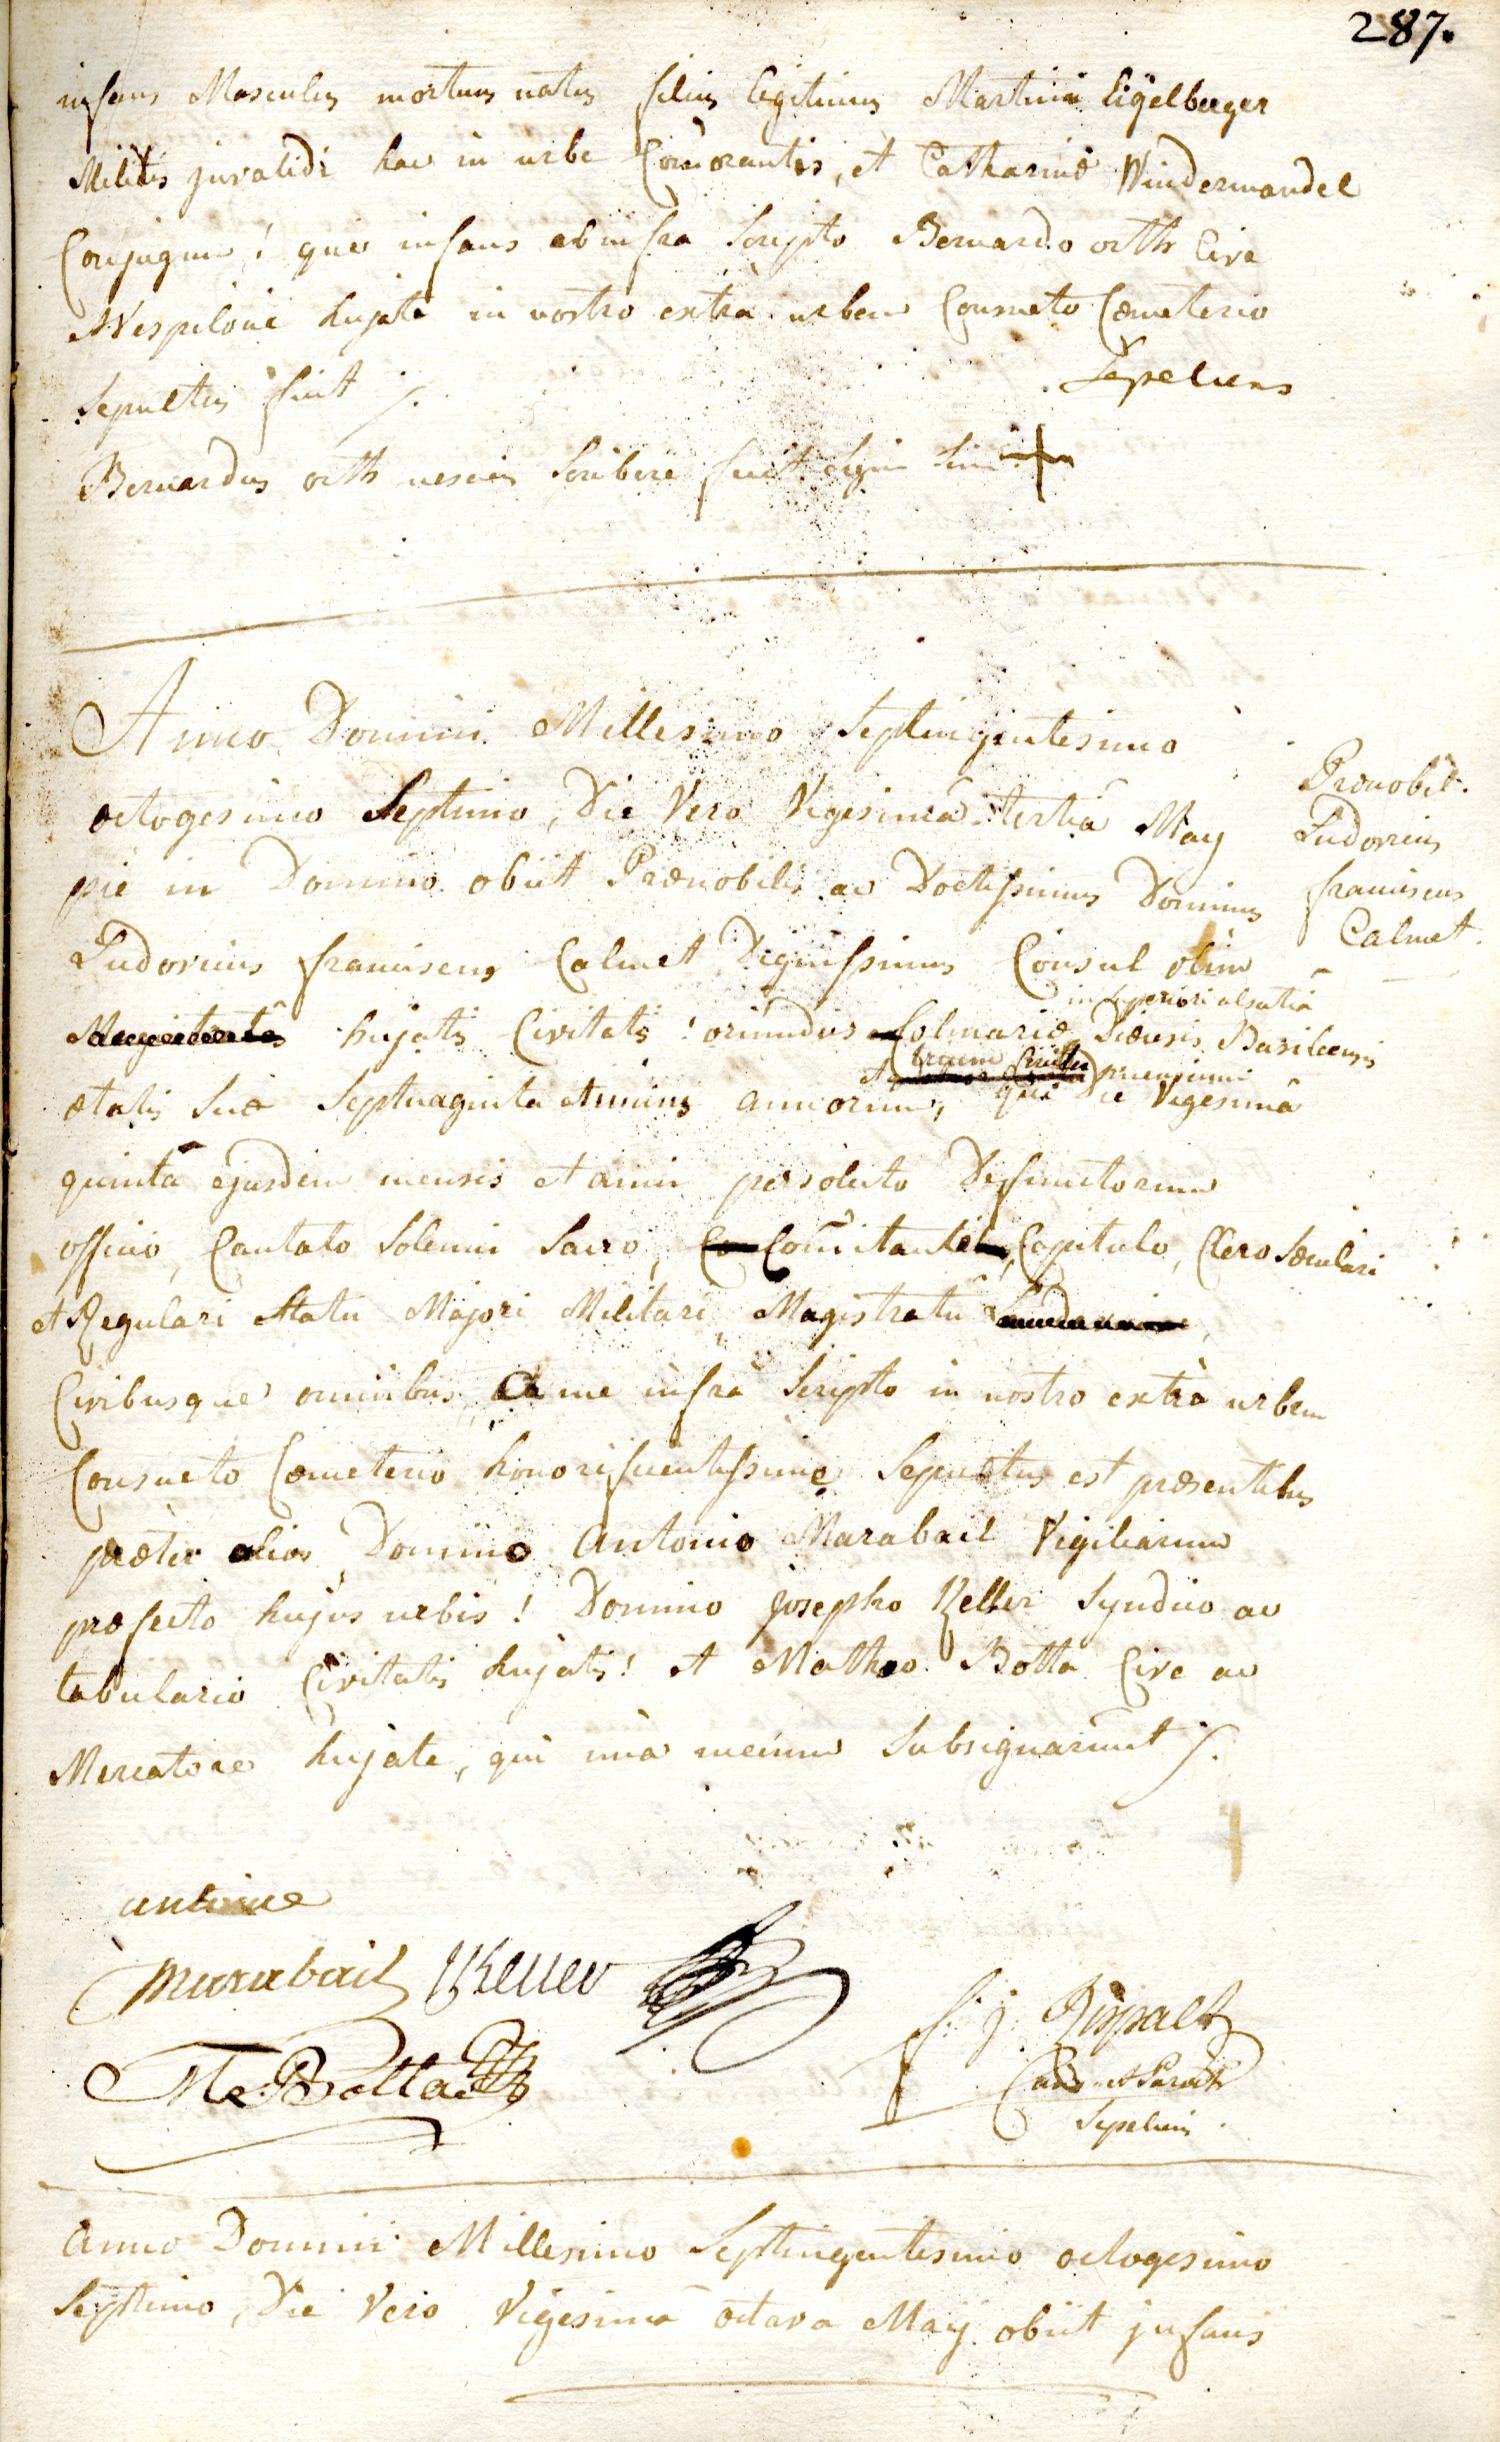 287.
infans Masculus mortuus natus filius legitimus Martini Eigelberger
Militis jnvalidi hac in urbe Com̃orantis, et Catharinæ Windermandel
Conjugum! qui infans ab infra Scripto Bernardo orth Cive
Vespilone hujate in nostro extrà urbem Consueto Cœmeterio
Sepultus fuit ⁒.
Sepeliens
Bernardus orth nesciens Scribere fecit signum suum +
Anno Domini Millesimo Septingentesimo
octogesimo Septimo, Die Vero Vigesimâ tertiâ May
pié in Domino obiit Prænobilis ac Doctissimus Dominus
Ludovicus franciscus Calmet Dignissimus Consul olim
hujatis Civitatis! oriundus Colmariæ in Superiori alsatiâ Diœcesis Basileensis
ætatis Suæ Septuaginta et unius annorum, et trium circiter mensium qui Die Vigesimâ
quintâ ejusdem mensis et anni persoluto Defunctorum
officio, Cantato Solemni Sacro, Com̃itante Capitulo, Clero Sæculari
et Regulari Statu Majori Militari, Magistratu
Civibusque omnibus, a me infrà Scripto in nostro extrà urbem
Consueto Cœmeterio honorificentissime Sepultus est præsentibus
præter alios Domino Antonio Marabail Vigiliarum
præfecto hujus urbis! Domino josepho Keller Syndico ac
tabulario Civitatis hujatis! et Mathæo Botta Cive ac
Mercatore hujate, qui unà mecum Subsignarunt ⁒.
Prænobil.
Ludovicus
franciscus
Calmet.
antoine
marabail Keller
Me. Botta
f. j. Rispalt
Can. et Paroch.
Sepeliens.
Anno Domini Millesimo Septingentesimo octogesimo
Septimo, Die Vero Vigesimâ octava May obiit jnfans